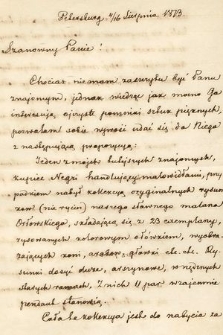 Petersburg, 4/16 Sierpnia 1873
Szanowny Panie!
Chociaż niemam zaszczytu być Panu
znajomym, jednak wiedząc jak mocno Go
interesują ojczyste pomniki sztuk pięknych,
pozwalam sobie wprost udać się do Niego
z następującą propozycyą:
Jeden z moich tutejszych znajomych,
kupiec Negri handlujący malowidłami, przy-
padkiem nabył kolekcyą oryginalnych rysun-
ków (nie rycin) naszego sławnego malarza
Orłowskiego, składającą się z 23 exemplarzy,
rysowanych kolorowym ołówkiem, wyobra-
żających konie, arabów, główki etc. etc. Ry-
sunki dosyć duże, oszklone, w
starych ramach, z nich 11 par wzajemnie
pendant stanowią.
Cała ta kollekcya jest do nabycia za